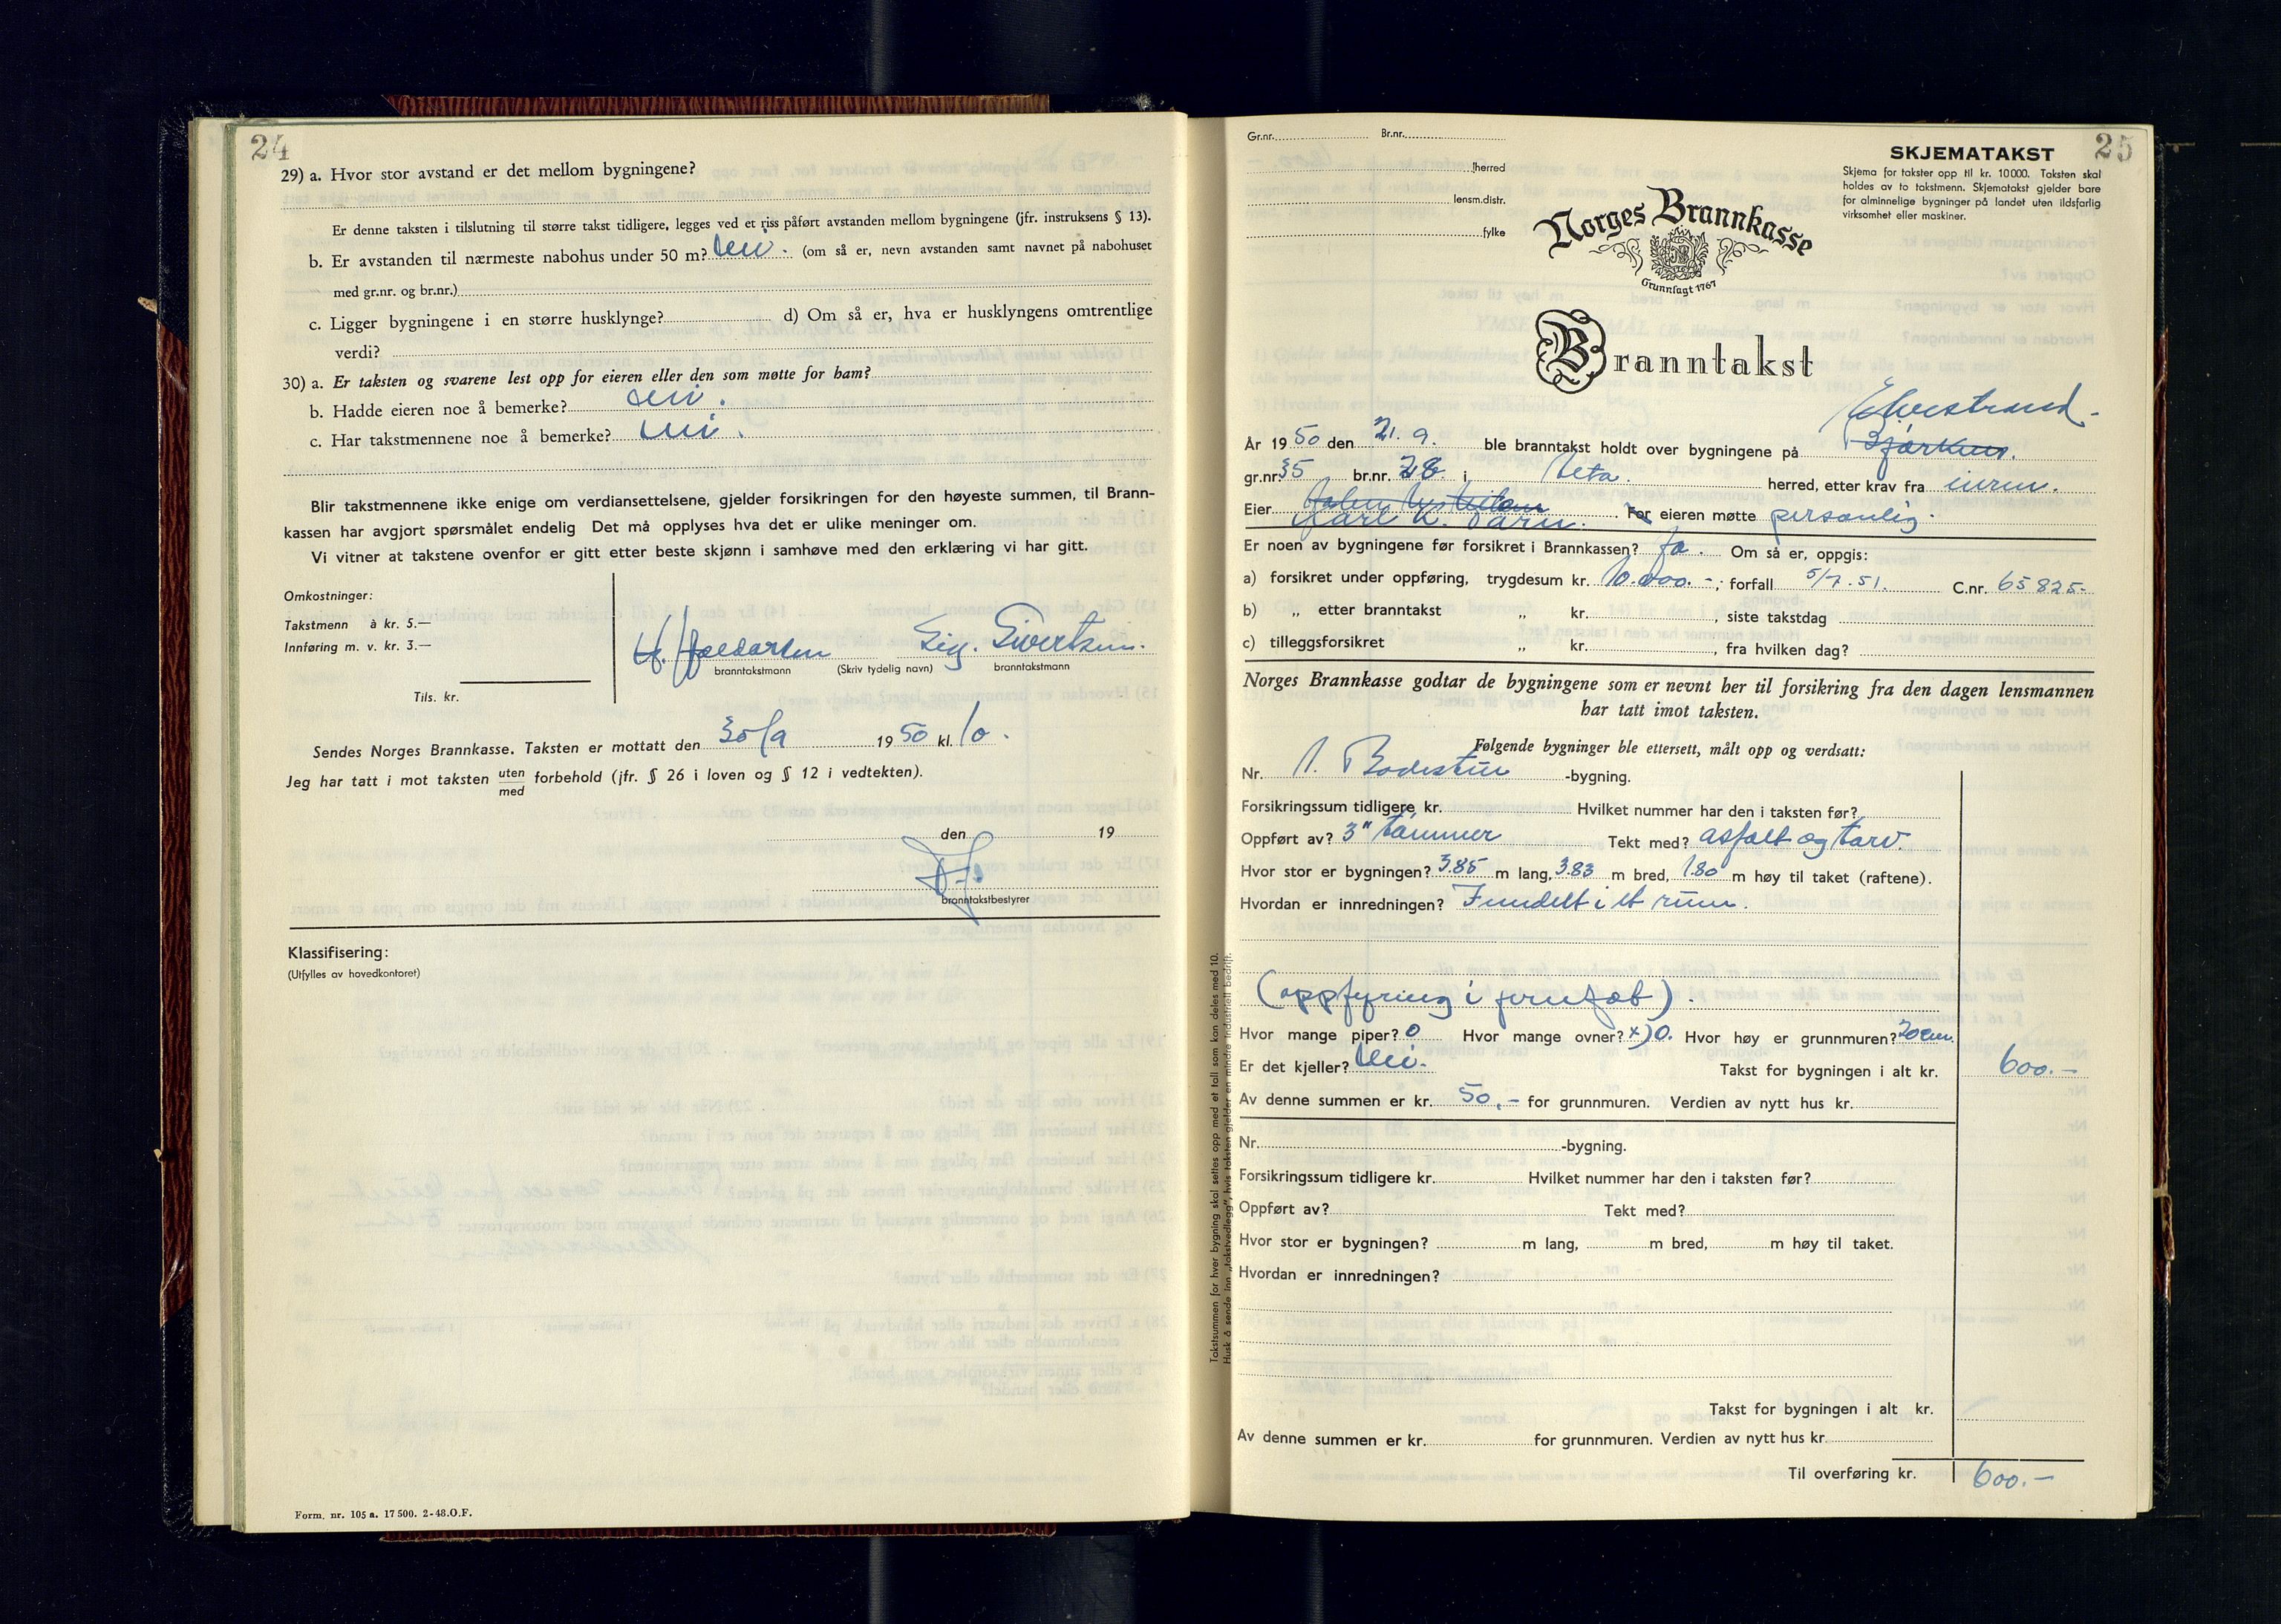 24
29) a. Hvor stor avstand er det mellom bygningene?
Er denne taksten i tilslutning til større takst tidligere, legges ved et riss påført avstanden mellom bygningene (jfr. instruksens § 13).
b. Er avstanden til nærmeste nabohus under 50 m? nei. (om så er, nevn avstanden samt navnet på nabohuset
med gr.nr. og br.nr.)
c. Ligger bygningene i en større husklynge? d) Om så er, hva er husklyngens omtrentlige
verdi?
30) a. Er taksten og svarene lest opp for eieren eller den som møtte for ham?
b. Hadde eieren noe å bemerke? nei.
c. Har takstmennene noe å bemerke? nei.
Blir takstmennene ikke enige om verdiansettelsene, gjelder forsikringen for den høyeste summen, til Brann-
kassen har avgjort spørsmålet endelig Det må opplyses hva det er ulike meninger om.
Vi vitner at takstene ovenfor er gitt etter beste skjønn i samhøve med den erklæring vi har gitt.
Omkostninger:
Takstmenn à kr. 5.—
Innføring m. v. kr. 3.—
Tils. kr.
Sig. Sivertsen.
branntakstmann (Skriv tydelig navn) branntakstmann
Sendes Norges Brannkasse. Taksten er mottatt den 30/9 1950 kl. 10.
Jeg har tatt i mot taksten uten forbehold (jfr. § 26 i loven og § 12 i vedtekten).
med
den 19
branntakstbestyrer
Klassifisering:
(Utfylles av hovedkontoret)
Form. nr. 105 a. 17 500. 2-48. O.F.
25
Gr.nr. Br.nr.
herred
lensm.distr.
fylke
SKJEMATAKST
Skjema for takster opp til kr. 10000. Taksten skal
holdes av to takstmenn. Skjematakst gjelder bare
for alminnelige bygninger på landet uten ildsfarlig
virksomhet eller maskiner.
Norges Brannkasse
Grunnlagt 1767
Branntakst
Elvestrand.
År 1950 den 21. 9. ble branntakst holdt over bygningene på Bjørkum.
gr.nr. 35 br.nr. 28 i herred, etter krav fra eieren.
Eier Karl K. For eieren møtte personlig.
Er noen av bygningene før forsikret i Brannkassen? Ja. Om så er, oppgis:
a) forsikret under oppføring, trygdesum kr. 10.000.-; forfall 5/7.51. C.nr. 65825.
b) „ etter branntakst „ kr. , siste takstdag
c) tilleggsforsikret „ kr. , fra hvilken dag?
Norges Brannkasse godtar de bygningene som er nevnt her til forsikring fra den dagen lensmannen
har tatt imot taksten.
Følgende bygninger ble ettersett, målt opp og verdsatt:
Nr. 1. Badestue -bygning.
Forsikringssum tidligere kr. Hvilket nummer har den i taksten før?
Oppført av? 3" tømmer Tekt med? asfalt og torv.
Hvor stor er bygningen? 3.85 m lang, 3.83 m bred, 1.80 m høy til taket (raftene).
Hvordan er innredningen? Inndelt i et rum.
(oppfyring i jernfat).
Hvor mange piper? 0 Hvor mange ovner? x) 0. Hvor høy er grunnmuren? 20 cm.
Er det kjeller? Nei. Takst for bygningen i alt kr. 600.-
Av denne summen er kr. 50.- for grunnmuren. Verdien av nytt hus kr.
Nr. -bygning.
Forsikringssum tidligere kr. Hvilket nummer har den i taksten før?
Oppført av? Tekt med?
Hvor stor er bygningen? m lang, m bred, m høy til taket.
Hvordan er innredningen?
Takst for bygningen i alt kr.
Av denne summen er kr. for grunnmuren. Verdien av nytt hus kr.
Til overføring kr. 600.-
Takstsummen for hver bygning skal settes opp med et tall som kan deles med 10.
Husk å sende inn „takstvedlegg", hvis taksten gjelder en mindre industriell bedrift.